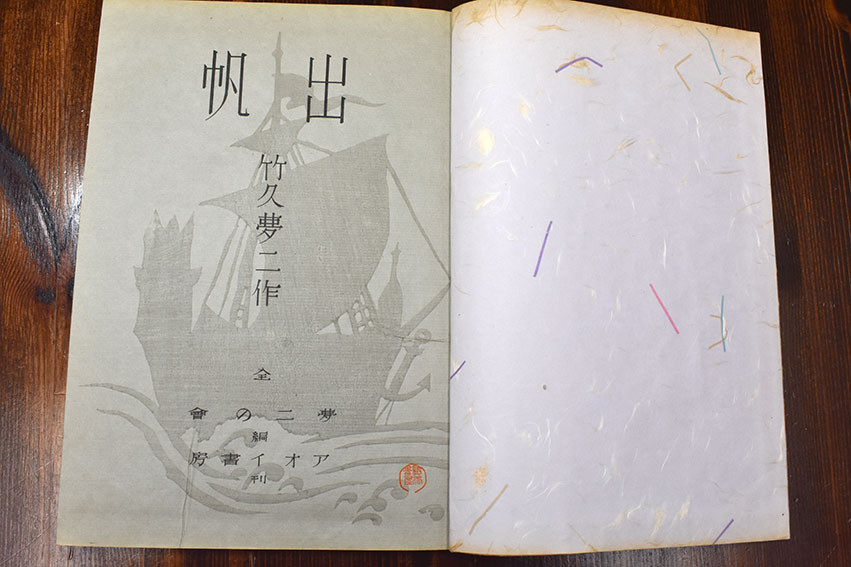 出帆
竹久夢二作
全
夢二の會
編
アオイ書房
刊